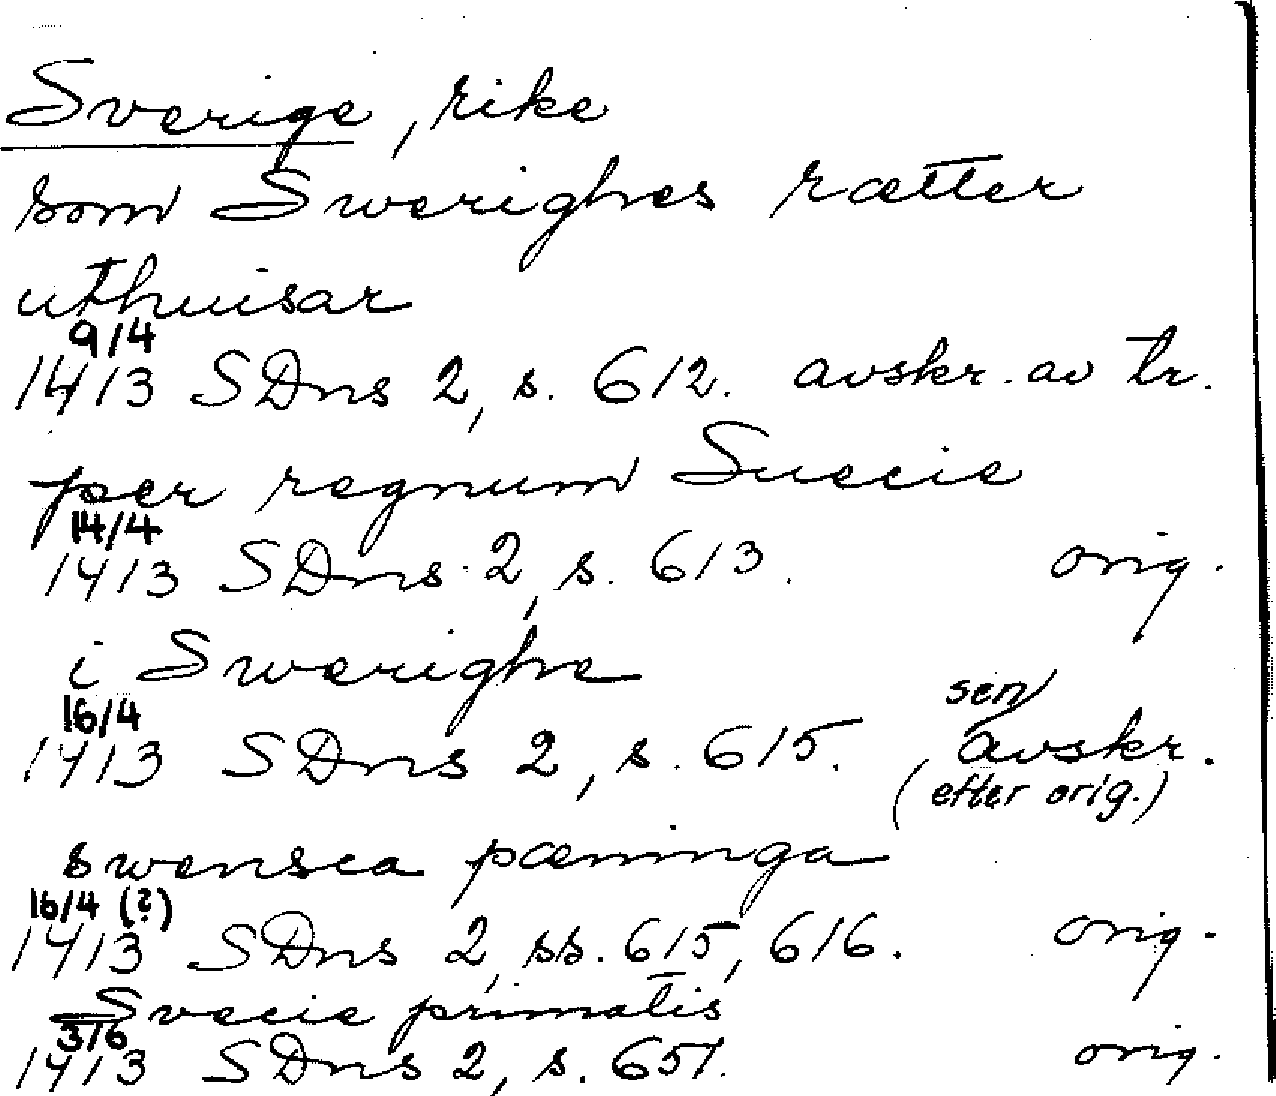 Sverige, rike
som Swerighes rætter
uthuisar
9/4
1413 SDns 2, s. 612. avskr. av tr.
per regnum Suecie
14/4
1413 SDns 2, s. 613. orig.
i Swerighe
16/4 sen
1413 SDns 2, s. 615. avskr.
(efter orig.)
swensca pæninga
16/4 (?)
1413 SDns 2, ss. 615, 616. orig.
Svecie primatis
3/6
1413 SDns 2, s. 651. orig.